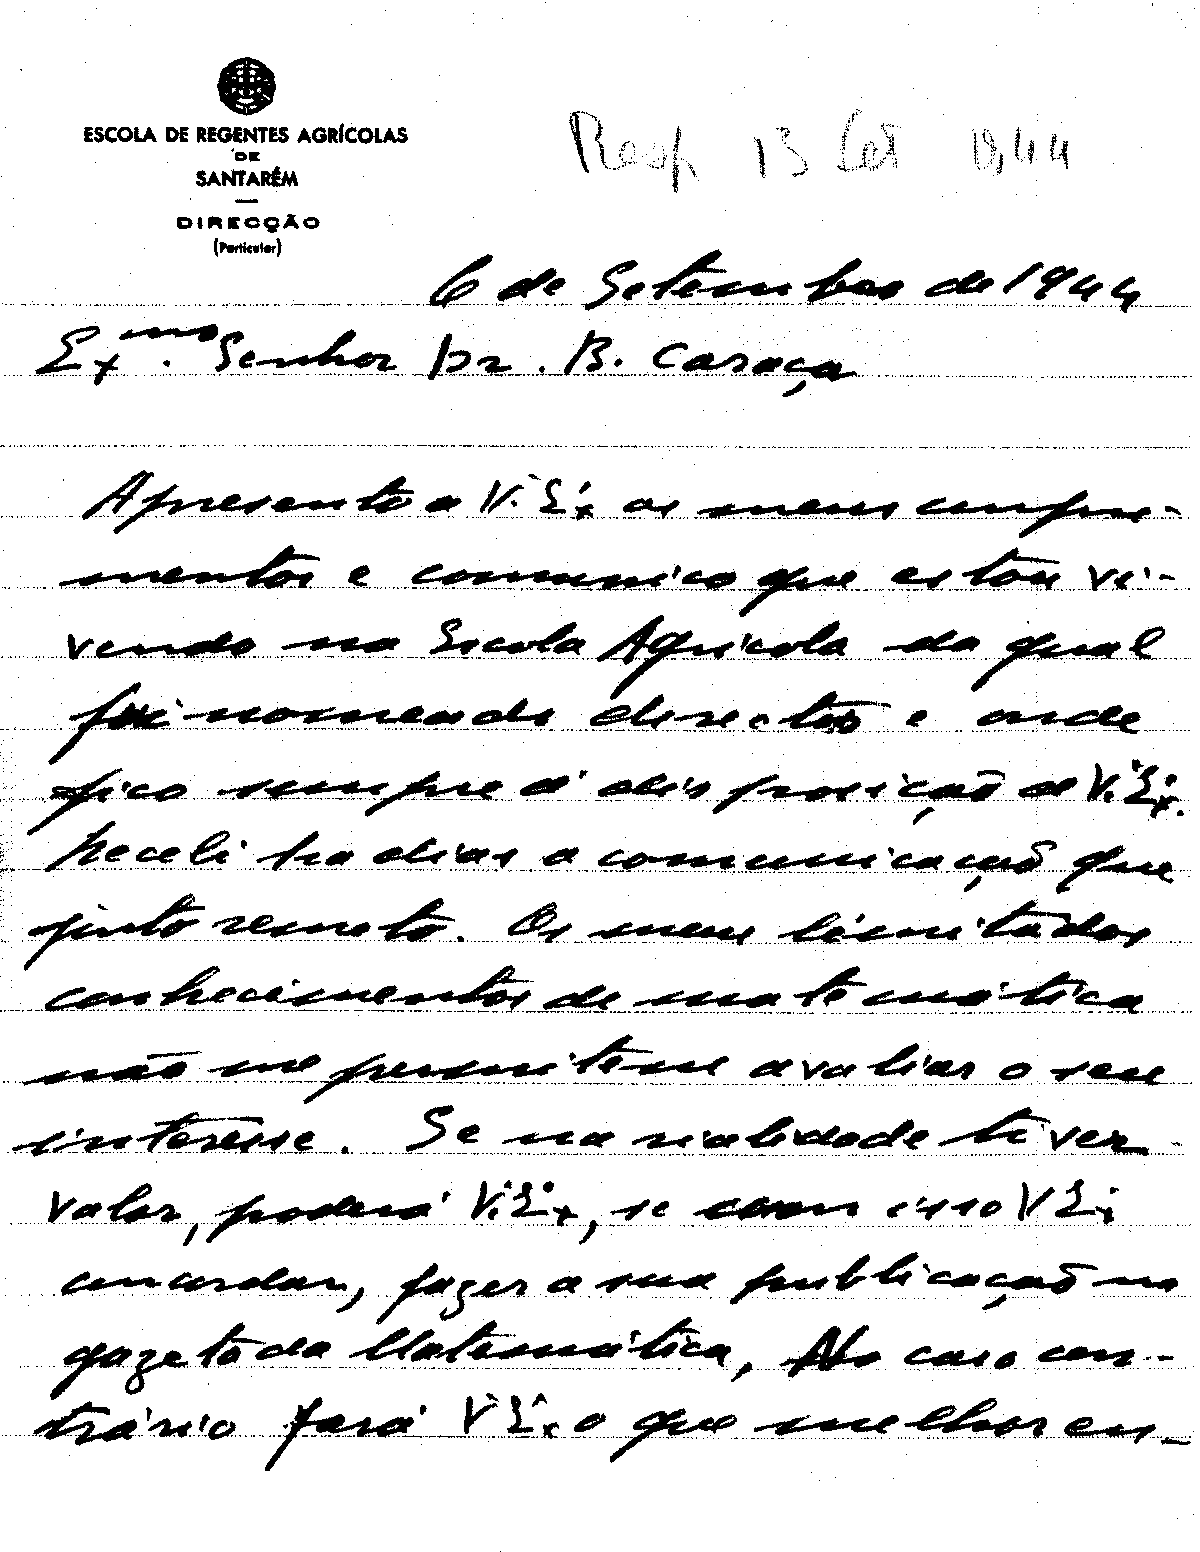 ESCOLA DE REGENTES AGRÍCOLAS
DE
SANTARÉM
DIRECÇÃO
(Particular)
Resp. 13 Set 1944
6 de Setembro de 1944
Exmo. Senhor Dr. B. Caraça
Apresento a V. Ex. os meus cumpri-
mentos e comunico que estou vi-
vendo na Escola Agrícola da qual
fui nomeado director e onde
fico sempre à disposição de V. Ex.
Recebi ha dias a comunicação que
junto remeto. Os meus limitados
conhecimentos de matemática
não me permitem avaliar o seu
interesse. Se na rialidade tiver
valor, poderá V. Ex, se com isso V Ex
concordar, fazer a sua publicação na
gazeta da Matemática, No caso con-
trário fará V Ex. o que melhor en-